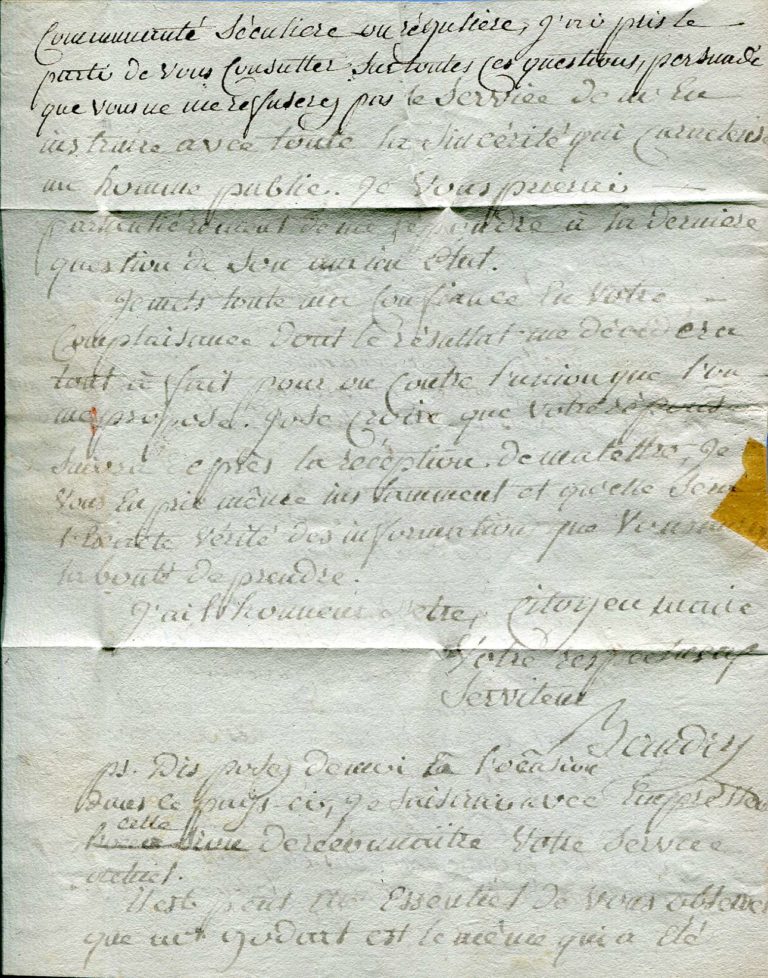 Communauté Séculiere ou réguliere, j'ai pris le
parti de vous Consulter sur toutes ces questions, persuadé
que vous ne me refuserez pas le Service de m'En
instruire avec toute la Sincérité qui Caractérise
un homme public. Je Vous prierai
particulièrement de me repondre à la derniere
question de Son ancien état.
Je mets toute ma Confiance En Votre
Complaisance dont le résultat me décidera
tout à fait pour ou Contre l'union que l'on
me propose. J'ose Croire que Votre réponse
Suivra après la réception de ma lettre, Je
Vous En prie même instamment et qu'elle Sera
l'Exacte Vérité des information que Vous
la bonté de prendre.
J'ai l'honneur d'etre, Citoyen maire
Votre respectueux
Serviteur
Baudin
ps. Disposez de moi En l'ocasion
dans ce pays-ci, Je Saisirai avec Empressem
cette de reconnaitre Votre Service
actuel.
Il est Essentiel de Vous observer
que mr godart est le même qui a été